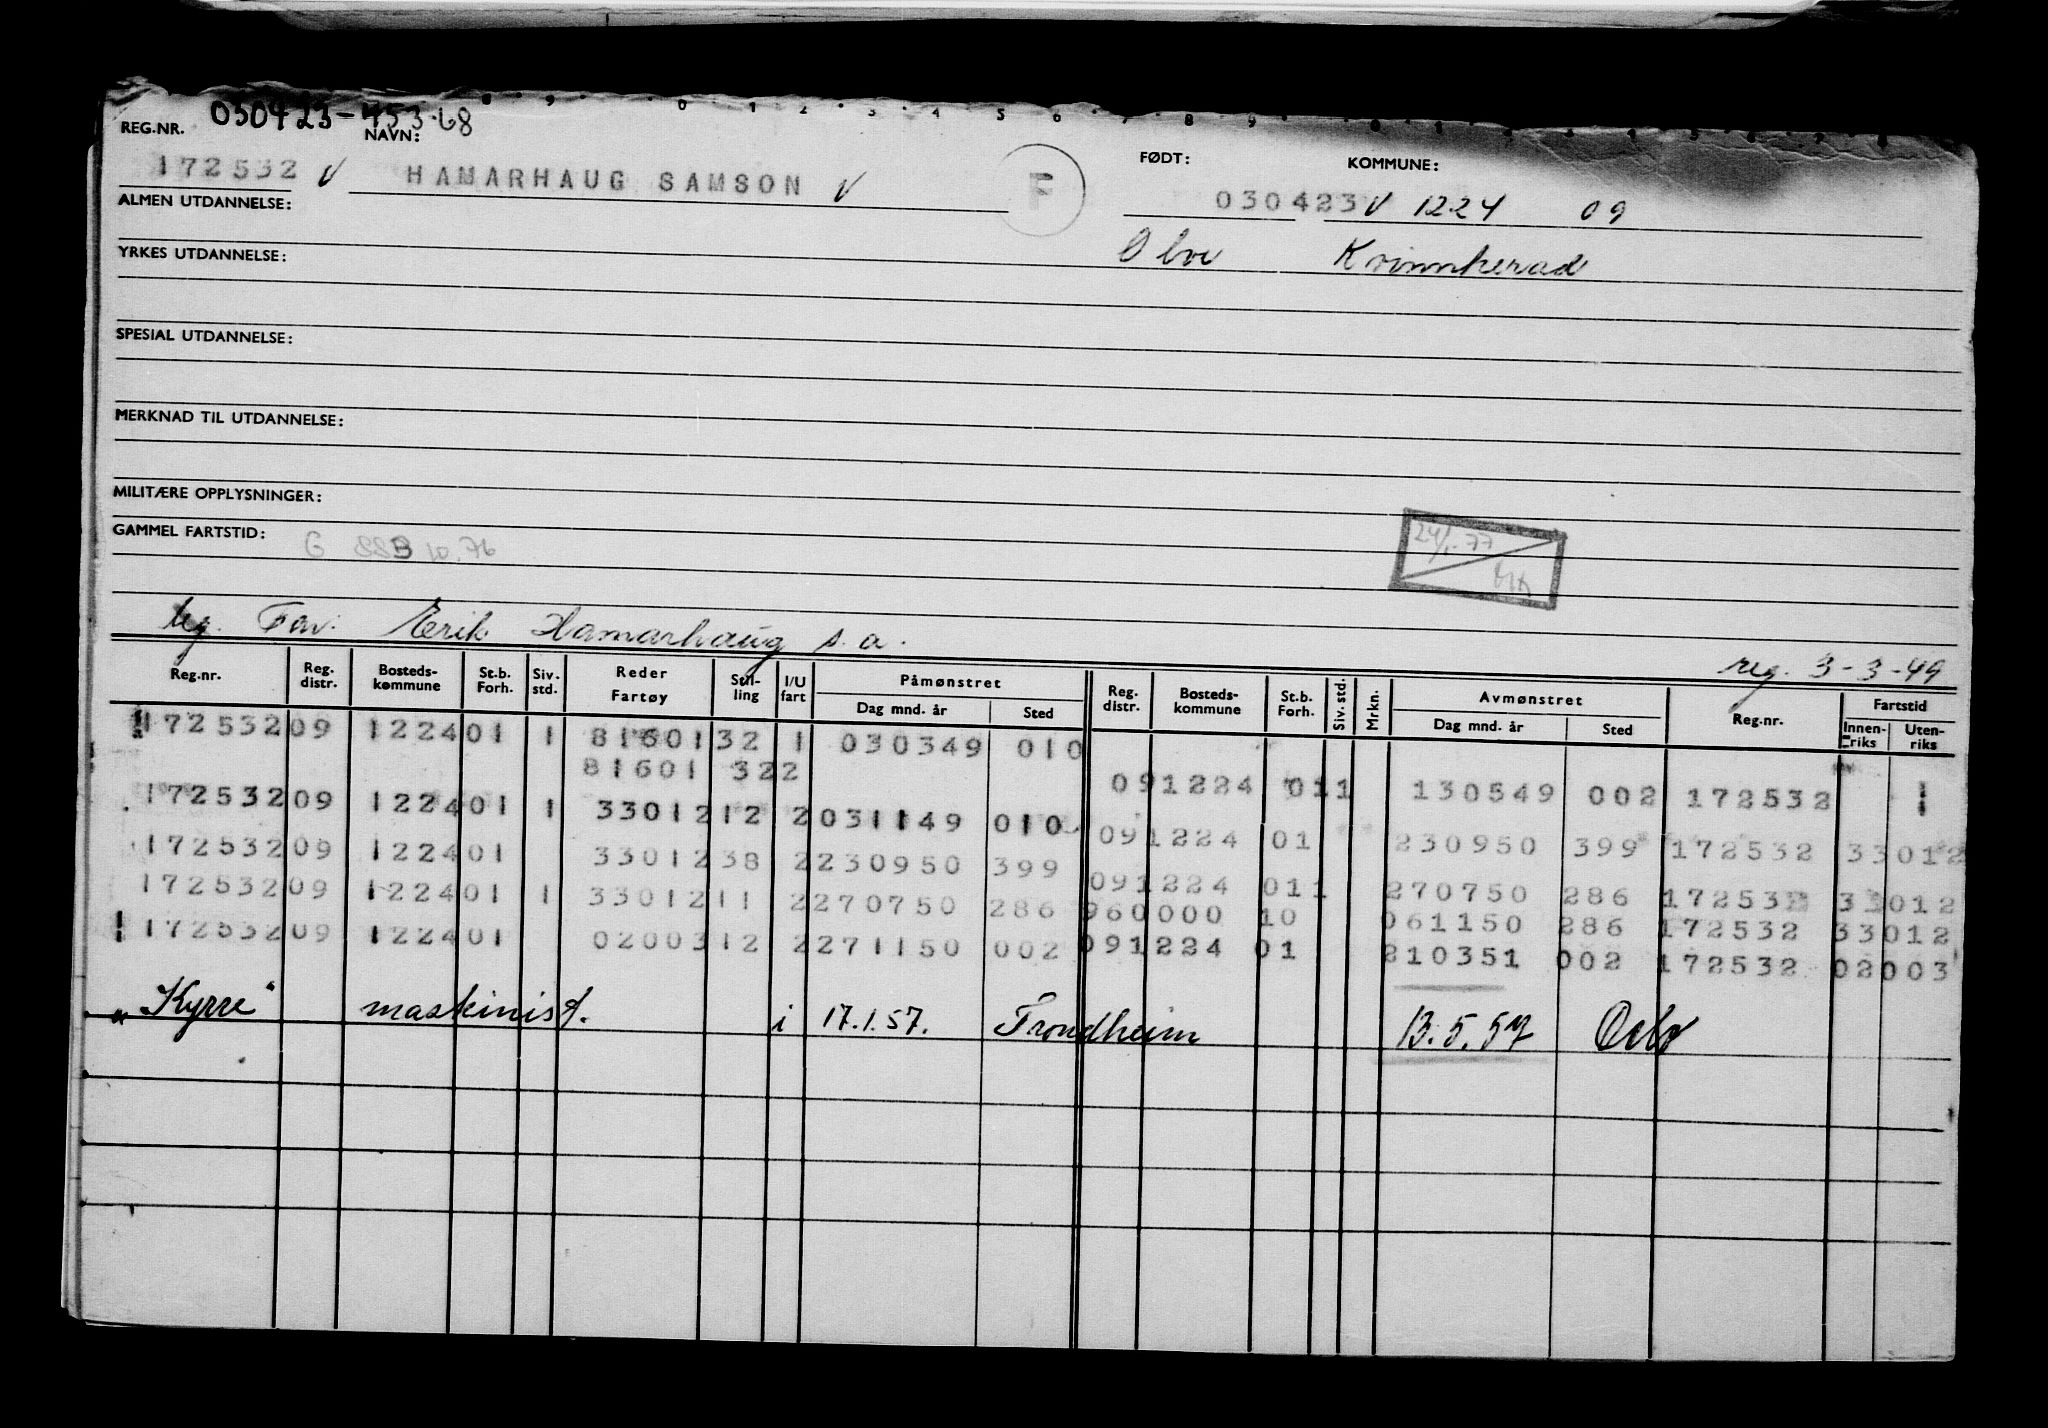 030423-453.68
REG.NR. NAVN: FØDT: KOMMUNE:
172532 V HAMARHAUG SAMSON V F 030423 V 1224 09
ALMEN UTDANNELSE: Kvinnherad
YRKES UTDANNELSE:
SPESIAL UTDANNELSE:
MERKNAD TIL UTDANNELSE:
MILITÆRE OPPLYSNINGER:
GAMMEL FARTSTID: G SSB 10.76
24/1-77
Far: Erik Hamarhaug s.a.
reg. 3-3-49
Reg.nr. Reg. distr. Bosteds-kommune St.b. Forh. Siv. std. Reder Fartøy Stilling I/U fart Påmønstret Dag mnd. år Sted Reg. distr. Bosteds-kommune St.b. Forh. Siv. std. Mrkn. Avmønstret Dag mnd. år Sted Reg.nr. Fartstid Innen-riks Uten-riks
172532 09 1224 01 1 81601 32 1 030349 010
81601 32 2 09 1224 01 1 130549 002 172532 1
172532 09 1224 01 1 33012 12 2 031149 010 09 1224 01 230950 399 172532 33012
172532 09 1224 01 33012 38 2 230950 399 09 1224 01 1 270750 286 172532 33012
172532 09 1224 01 1 33012 11 2 270750 286 960000 10 061150 286 172532 33012
172532 09 1224 01 02003 12 2 271150 002 09 1224 01 210351 002 172532 02003
"Kyrre" maskinist. i 17.1.57. Trondheim 13.5.57 Oslo